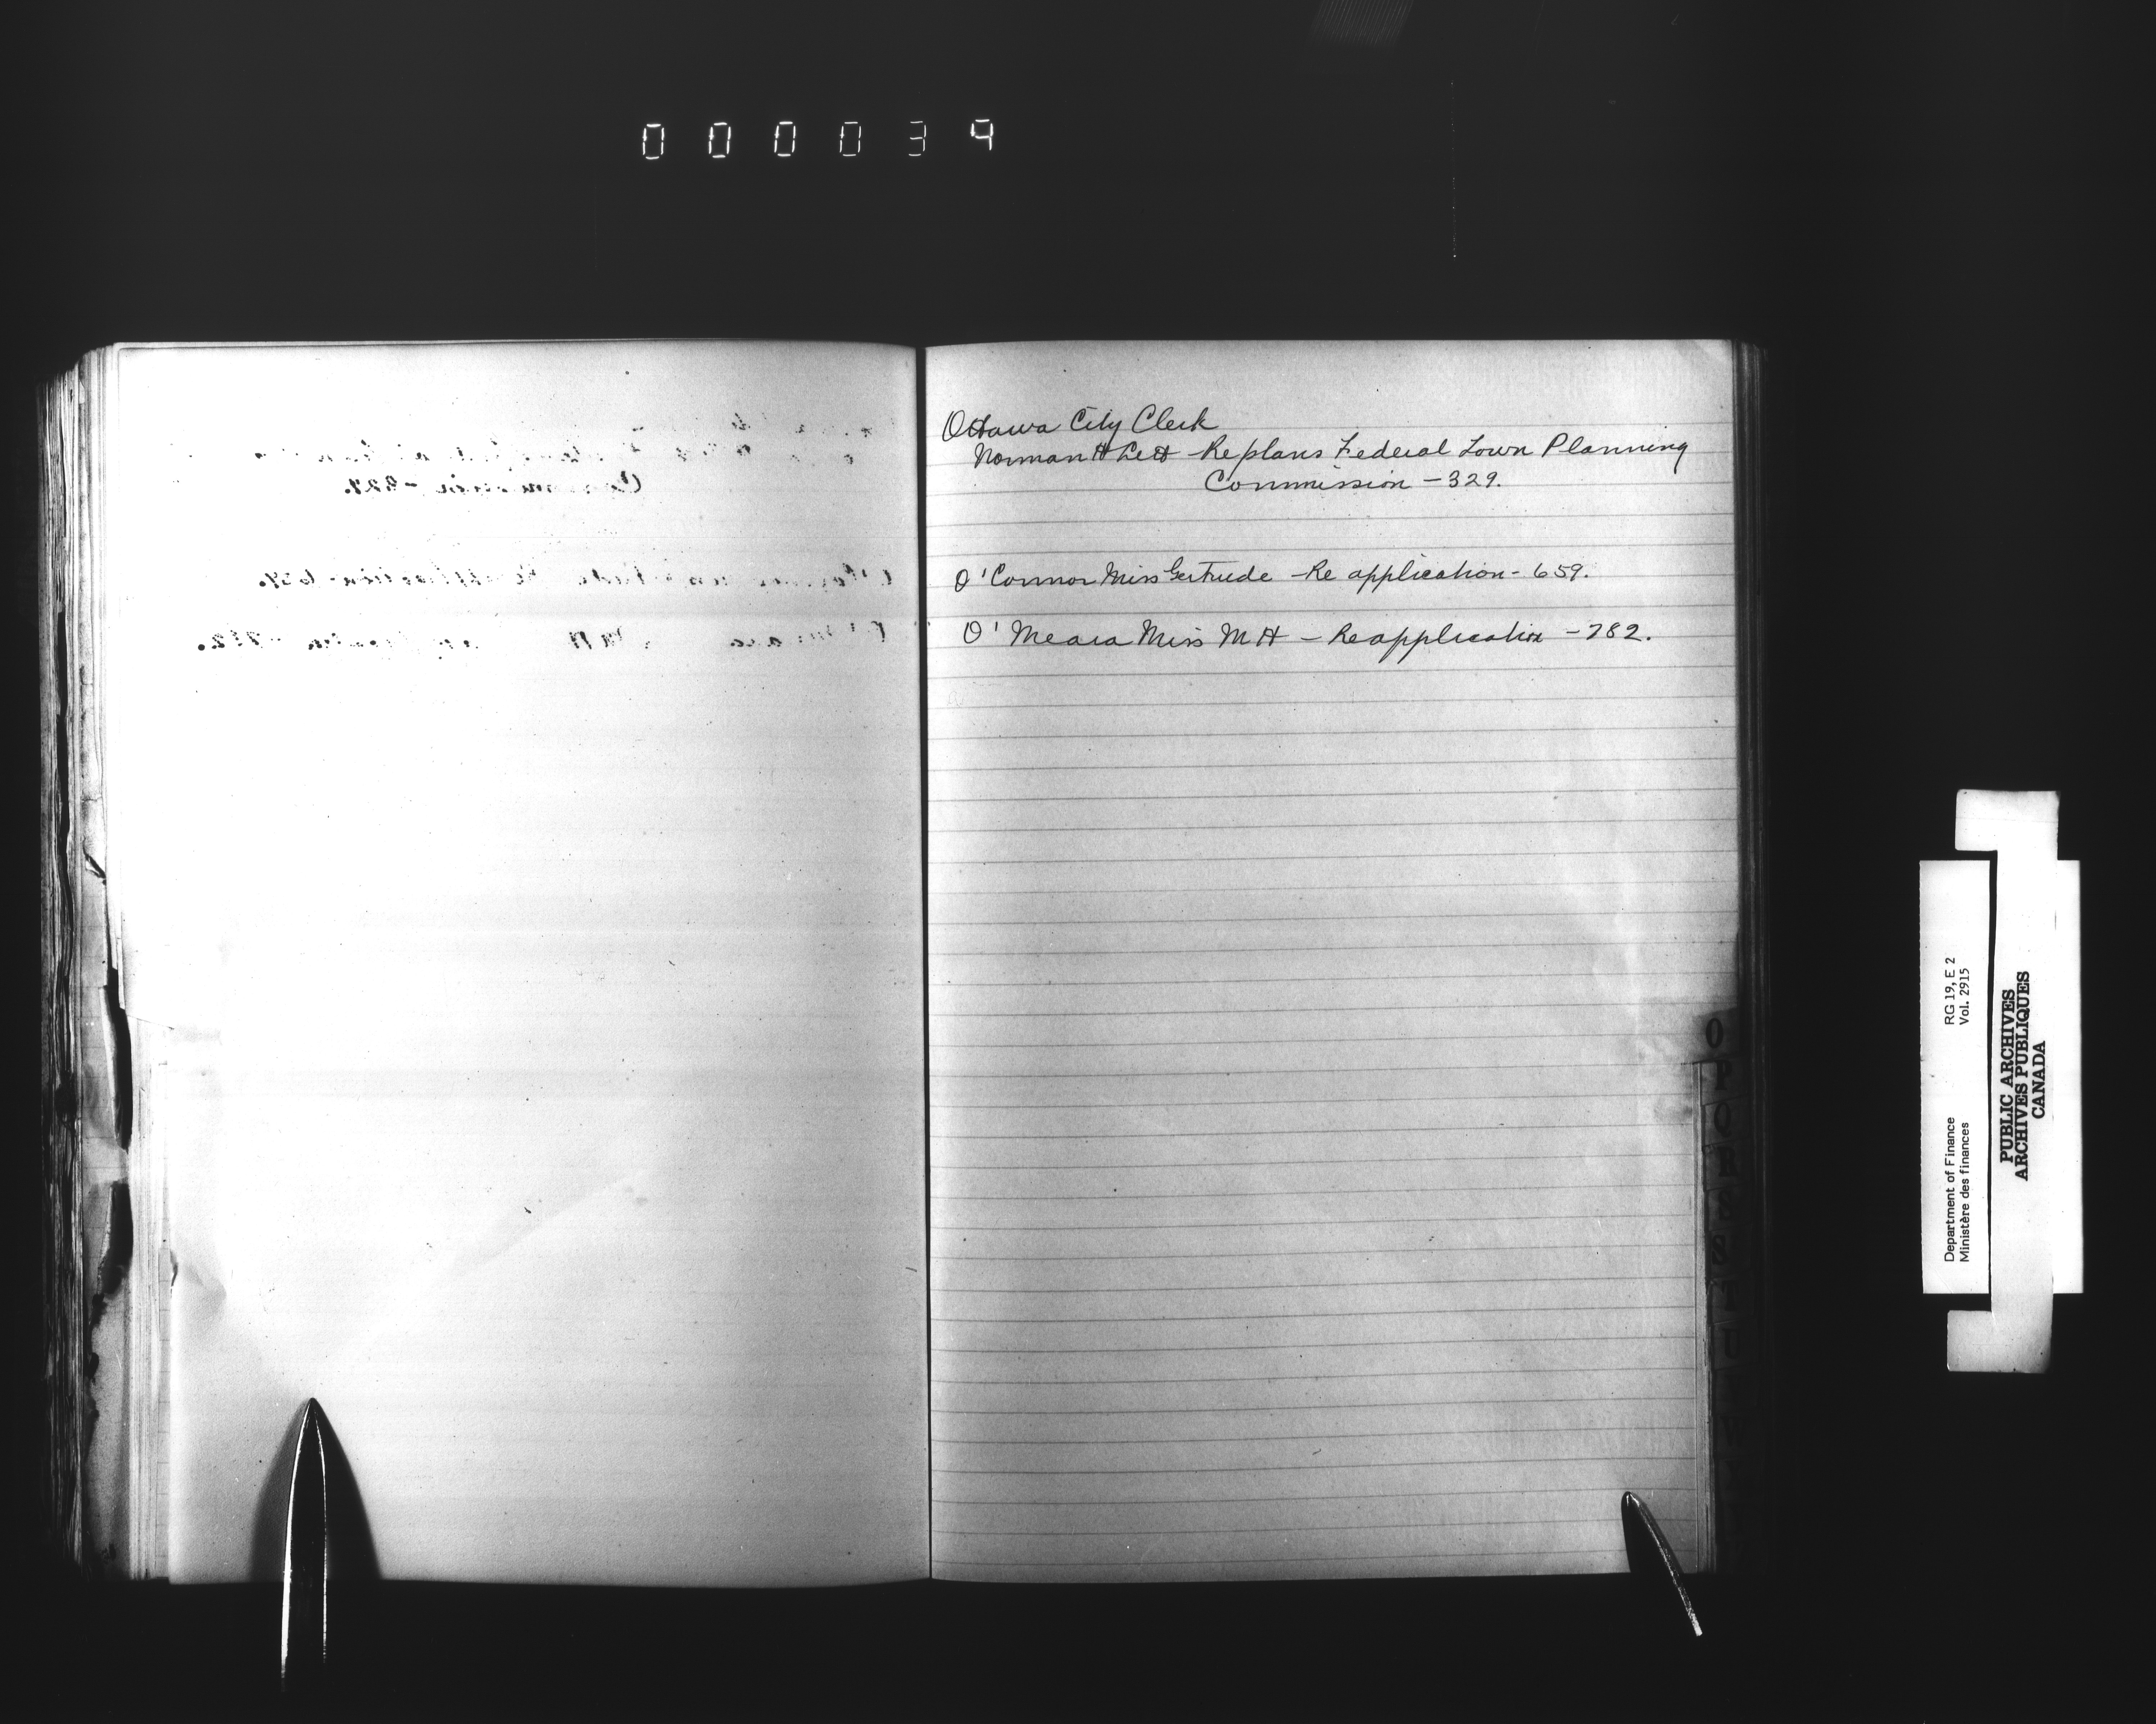 000039
Ottawa City Clerk
Norman H Lett - Re plans Federal Town Planning
Commission - 329.
O'Connor Miss Gertrude - Re application - 659.
O'Meara Miss M H - Re application - 782.
O
P
Q
R
S
T
Department of Finance
Ministère des finances
RG 19, E 2
Vol. 2915
PUBLIC ARCHIVES
ARCHIVES PUBLIQUES
CANADA